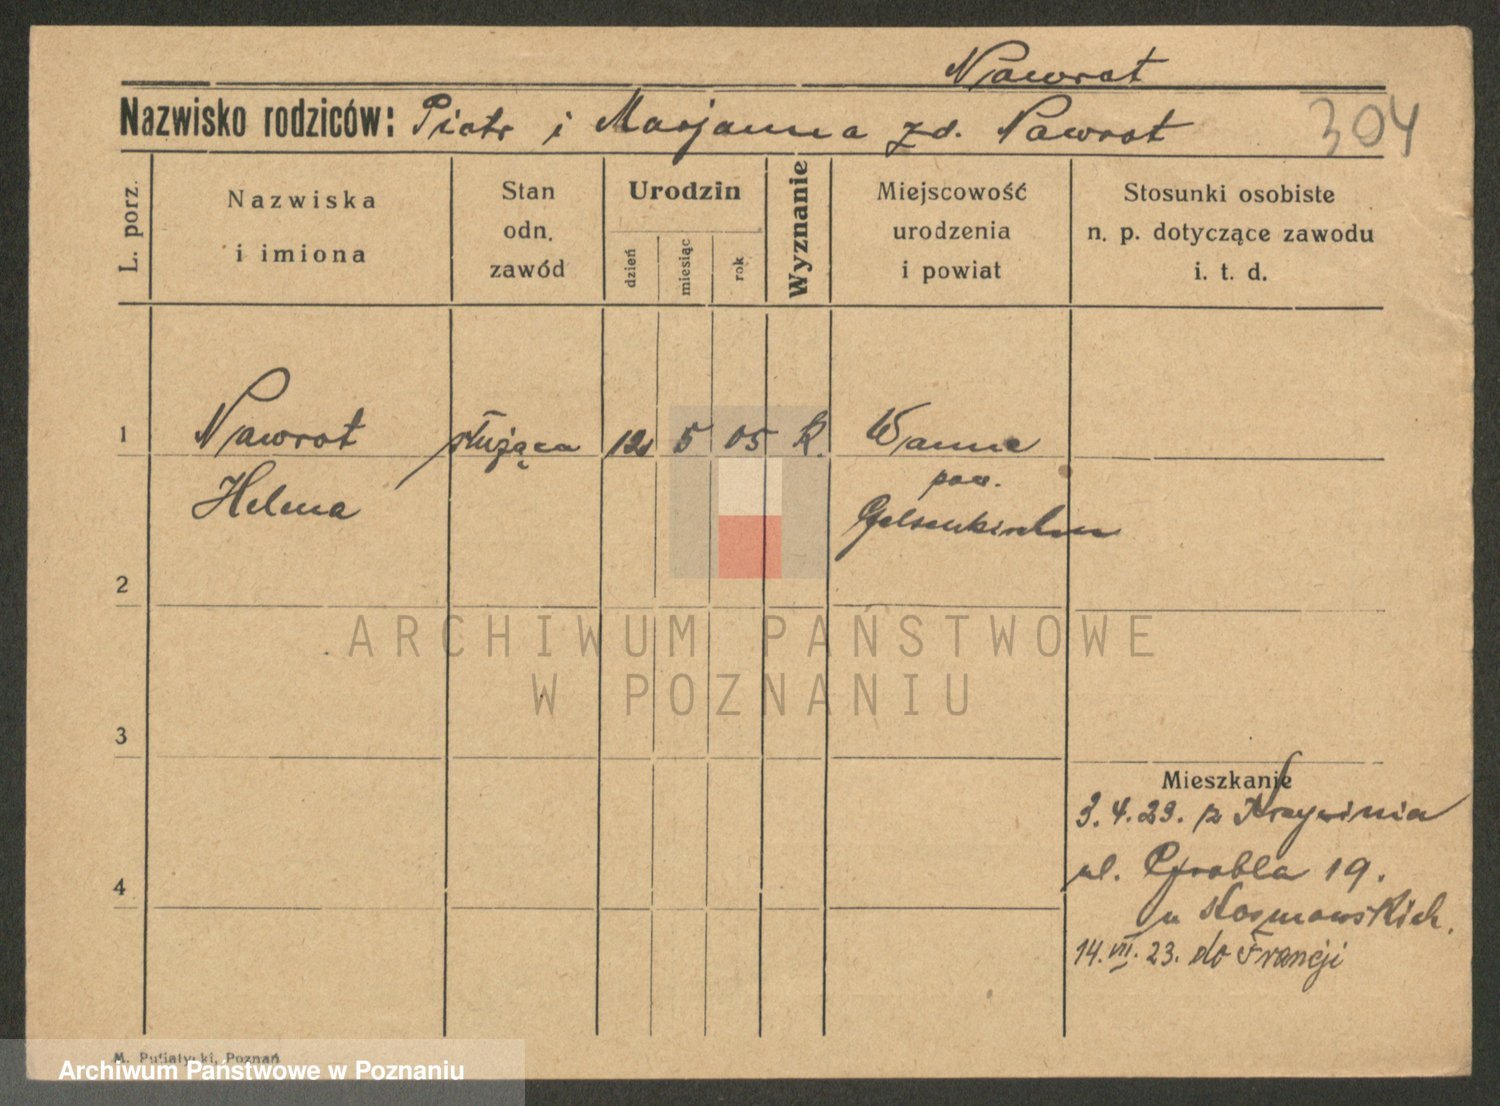 Nawrot
Nazwisko rodziców: Piotr i Marjanna zd. Nawrot
304
L. porz.
Nazwiska
i imiona
Stan
odn.
zawód
Urodzin
dzień
miesiąc
rok
Wyznanie
Miejscowość
urodzenia
i powiat
Stosunki osobiste
n. p. dotyczące zawodu
i. t. d.
1
Nawrot służąca 12 5 05 k. Wanne
pow.
Helena Gelsenkirchen
2
ARCHIWUM PAŃSTWOWE
W POZNANIU
3
Mieszkanie
3.4.23. z Krzywinia
4
ul. Grobla 19.
u
14.VII.23. do Francji
M. Putiatycki, Poznań
Archiwum Państwowe w Poznaniu